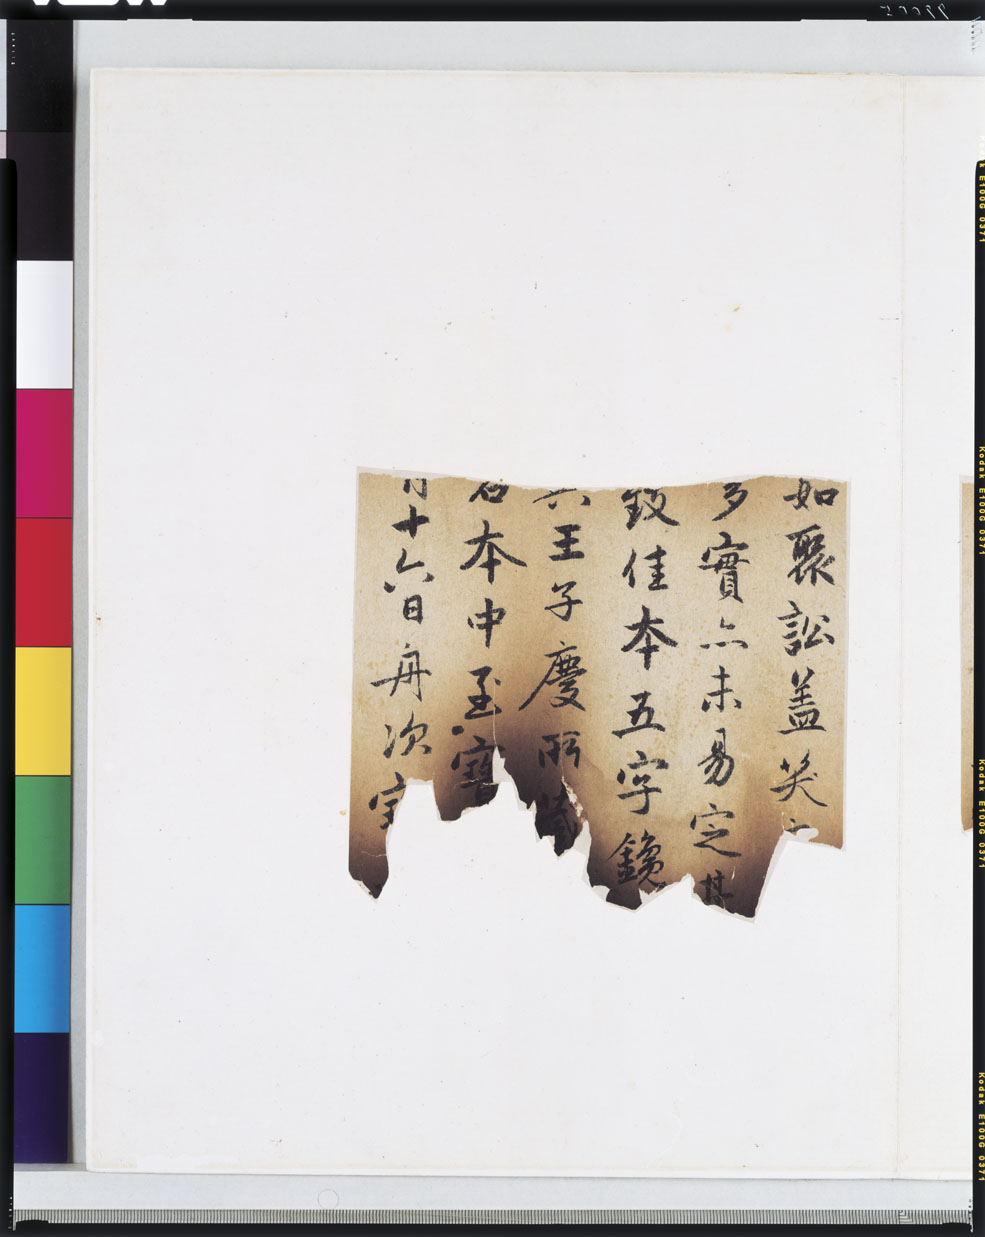 如聚訟蓋笑
多實亦未易定其
致佳本五字鑱
王子慶所藏
石本中至寶
月十六日舟次宝
Kodak E100G 0371
Kodak E100G 0371
Kodak E100G 0371
Kodak E100G 0371